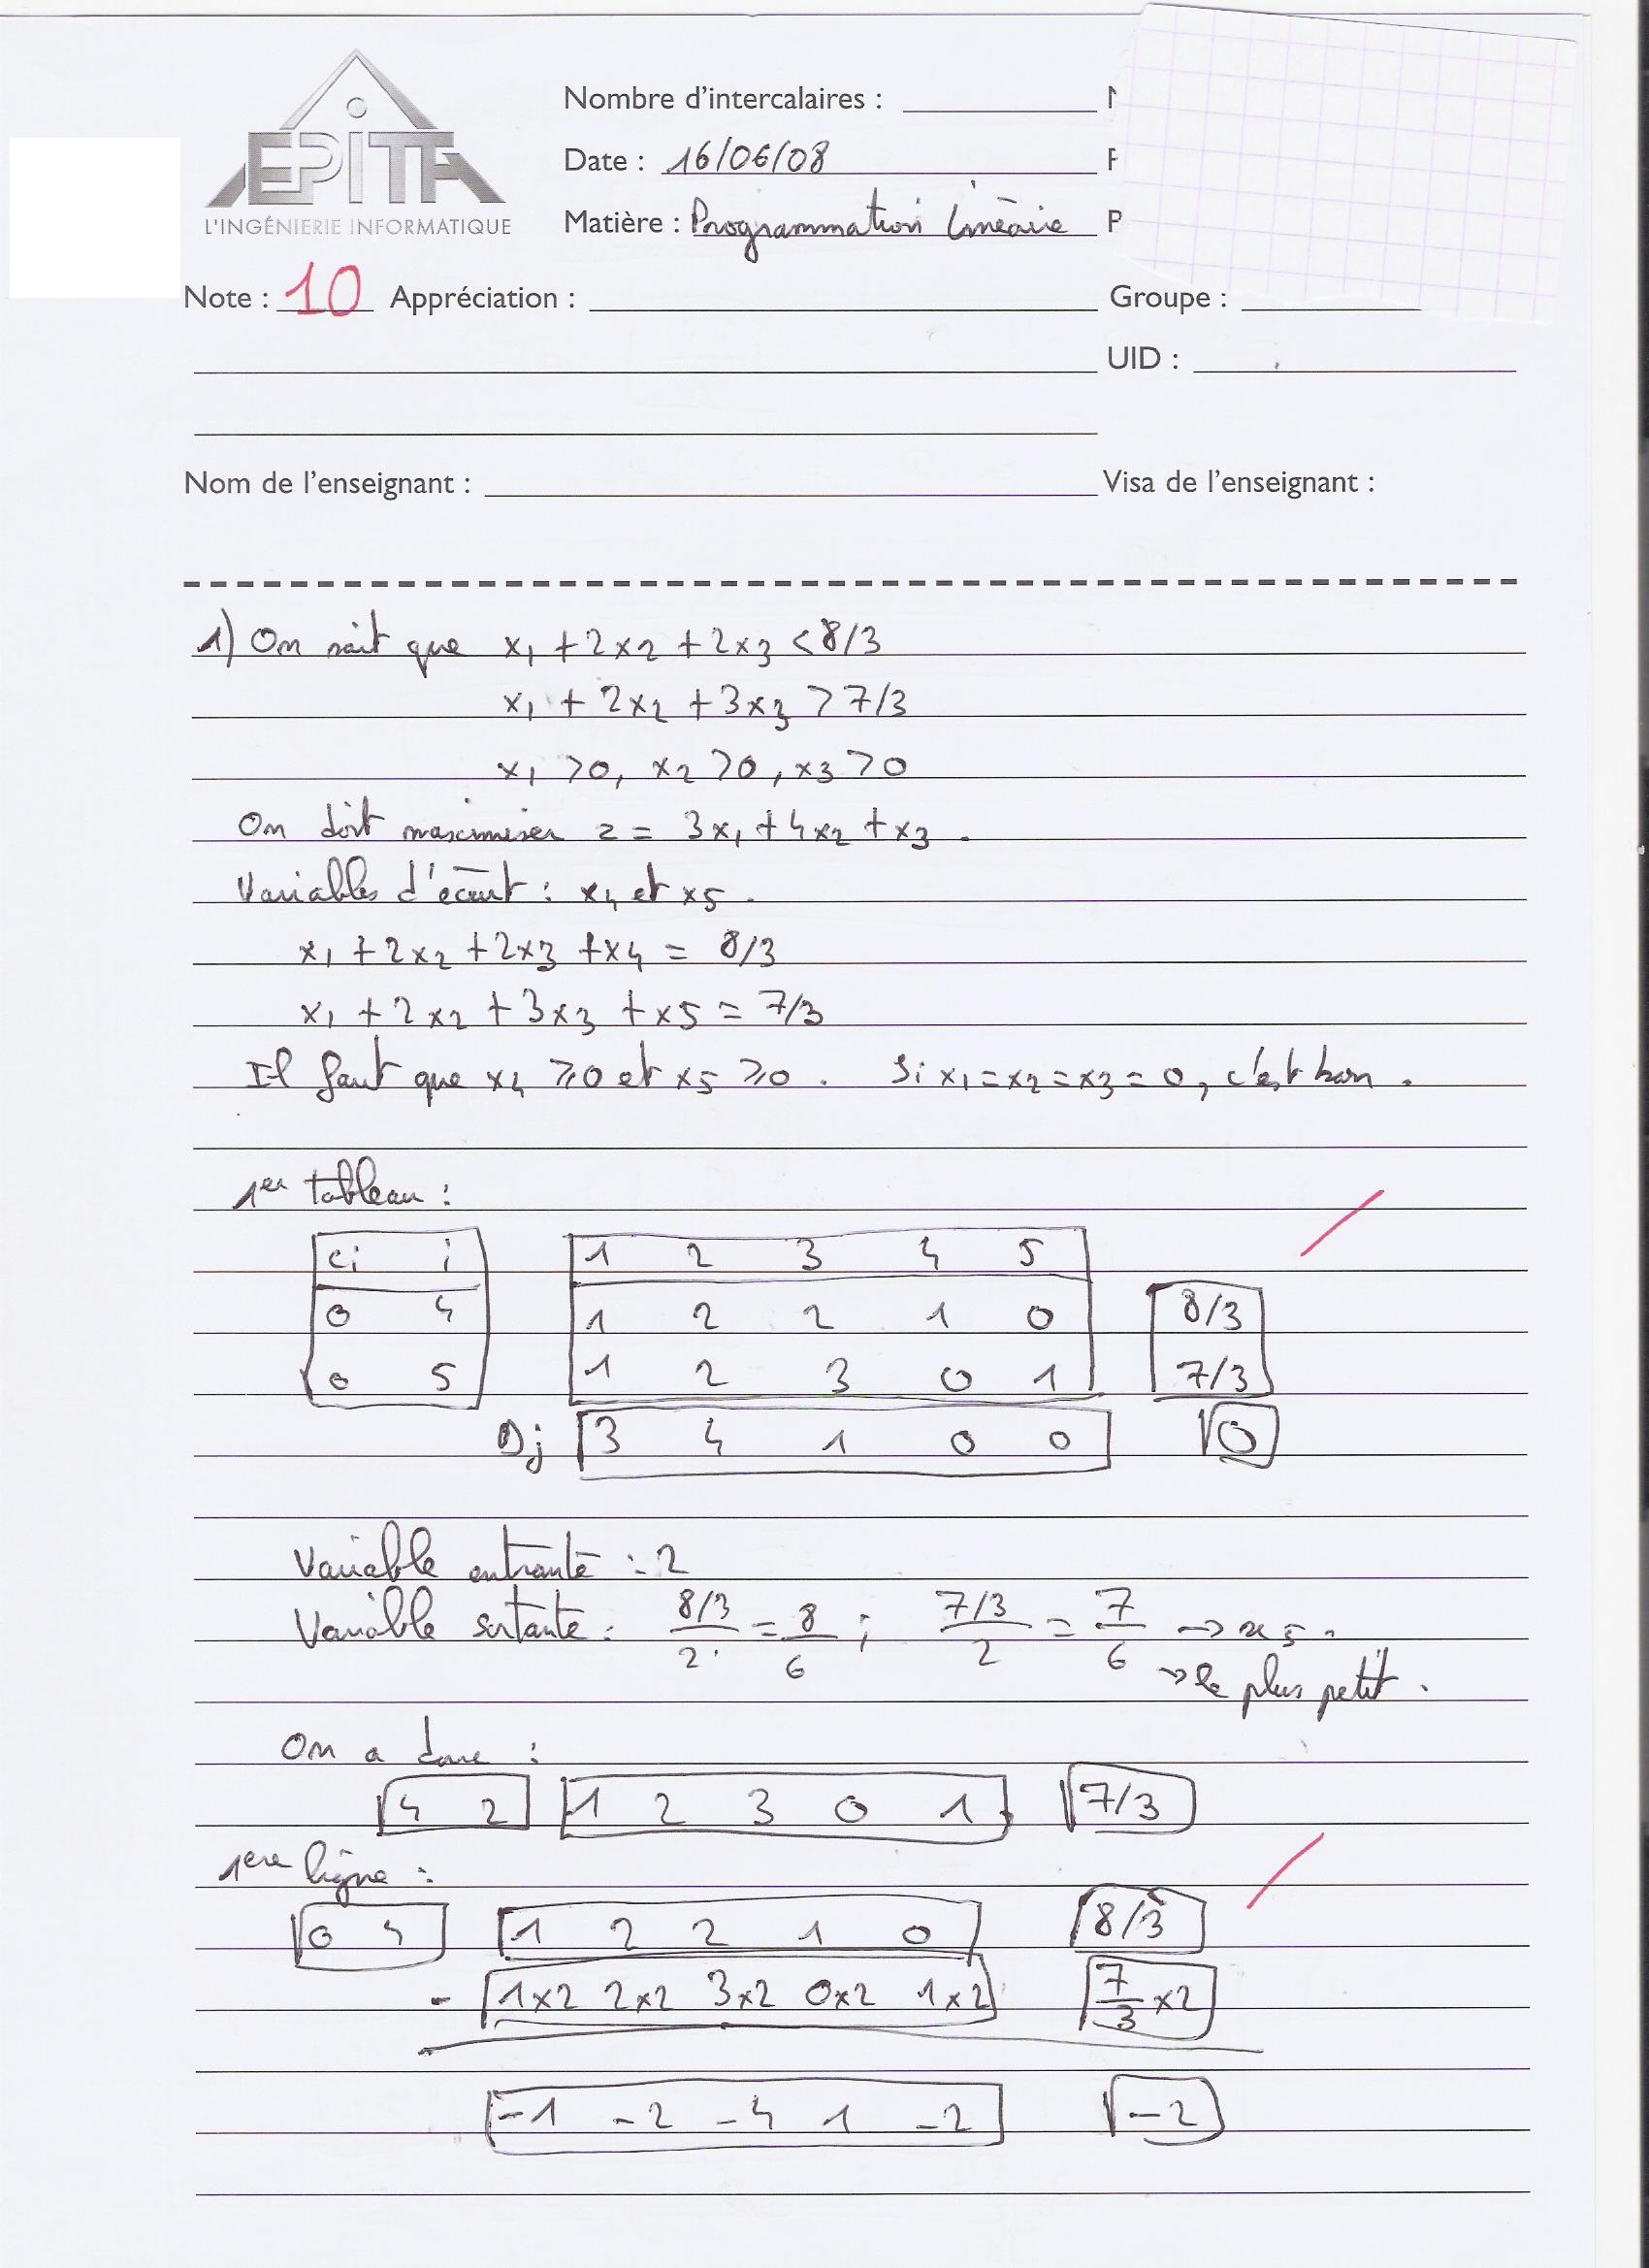 EPITA
L'INGÉNIERIE INFORMATIQUE
Nombre d'intercalaires :
Date : 16/06/08
Matière : Programmation linéaire
Note : 10 Appréciation :
Groupe :
UID :
Nom de l'enseignant :
Visa de l'enseignant :
1) On sait que x1 + 2x2 + 2x3 < 8/3
x1 + 2x2 + 3x3 > 7/3
x1 > 0, x2 > 0, x3 > 0
On doit maximiser z = 3x1 + 4x2 + x3.
Variables d'écart : x4 et x5.
x1 + 2x2 + 2x3 + x4 = 8/3
x1 + 2x2 + 3x3 + x5 = 7/3
Il faut que x4 ⩾ 0 et x5 ⩾ 0. Si x1 = x2 = x3 = 0, c'est bon.
1er tableau :
ci i 1 2 3 4 5
0 4 1 2 2 1 0 8/3
0 5 1 2 3 0 1 7/3
Dj 3 4 1 0 0 0
Variable entrante : 2
Variable sortante : 8/3 / 2 = 8/6 ; 7/3 / 2 = 7/6 → x5.
→ le plus petit.
On a donc :
4 2 1 2 3 0 1 7/3
1ere ligne :
0 4 1 2 2 1 0 8/3
- 1x2 2x2 3x2 0x2 1x2 7/3 x2
-1 -2 -4 1 -2 -2